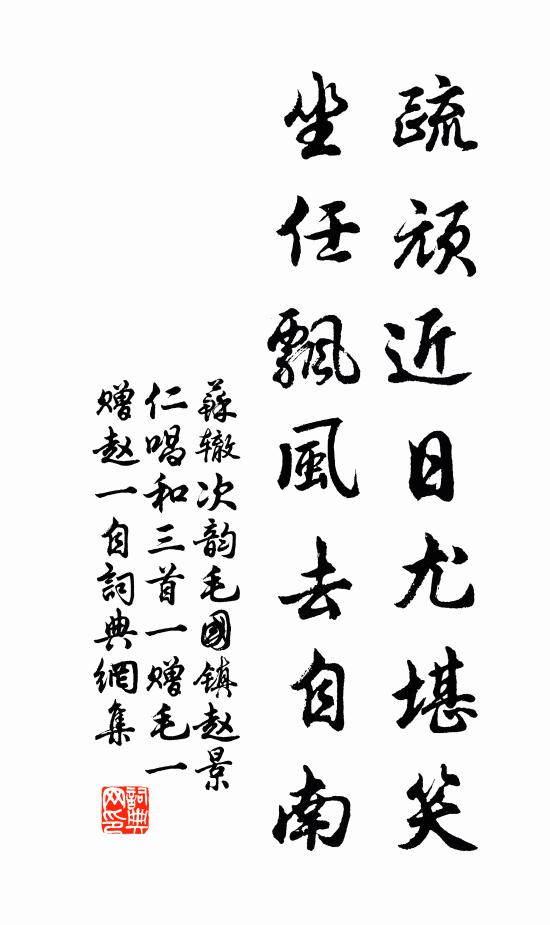 疏頑近日尤堪笑
坐任飄風去自南
蘇辙次韵毛國镇赵景
仁唱和三首一赠毛一
赠赵一自詞典網集
詞典网印